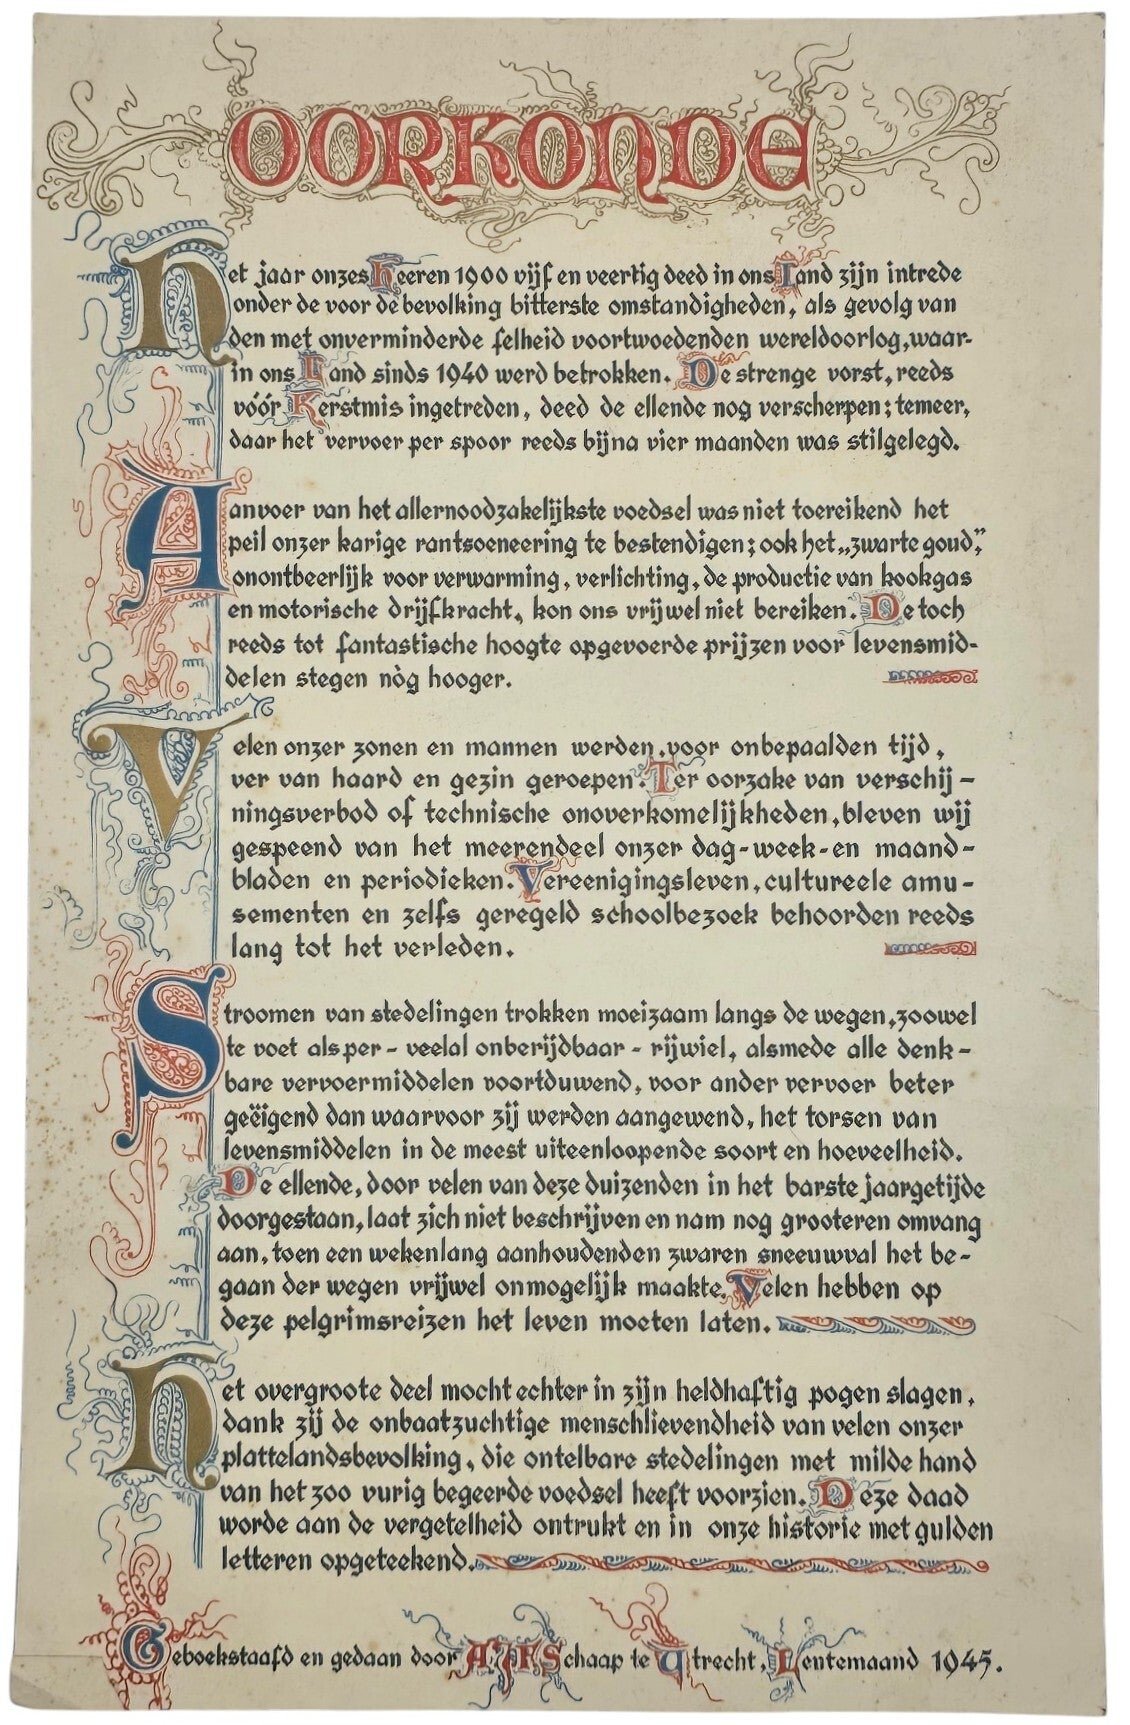 OORKONDE
Het jaar onzes Heeren 1900 vijf en veertig deed in ons Land zijn intrede
onder de voor de bevolking bitterste omstandigheden, als gevolg van
den met onverminderde felheid voortwoedenden wereldoorlog, waar-
in ons Land sinds 1940 werd betrokken. De strenge vorst, reeds
vóór Kerstmis ingetreden, deed de ellende nog verscherpen; temeer,
daar het vervoer per spoor reeds bijna vier maanden was stilgelegd.
Aanvoer van het allernoodzakelijkste voedsel was niet toereikend het
peil onzer karige rantsoeneering te bestendigen; ook het „zwarte goud”,
onontbeerlijk voor verwarming, verlichting, de productie van kookgas
en motorische drijfkracht, kon ons vrijwel niet bereiken. De toch
reeds tot fantastische hoogte opgevoerde prijzen voor levensmid-
delen stegen nòg hooger.
Velen onzer zonen en mannen werden, voor onbepaalden tijd,
ver van haard en gezin geroepen. Ter oorzake van verschij-
ningsverbod of technische onoverkomelijkheden, bleven wij
gespeend van het meerendeel onzer dag-week-en maand-
bladen en periodieken. Vereenigingsleven, cultureele amu-
sementen en zelfs geregeld schoolbezoek behoorden reeds
lang tot het verleden.
Stroomen van stedelingen trokken moeizaam langs de wegen, zoowel
te voet als per - veelal onberijdbaar - rijwiel, alsmede alle denk-
bare vervoermiddelen voortduwend, voor ander vervoer beter
geëigend dan waarvoor zij werden aangewend, het torsen van
levensmiddelen in de meest uiteenloopende soort en hoeveelheid.
De ellende, door velen van deze duizenden in het barste jaargetijde
doorgestaan, laat zich niet beschrijven en nam nog grooteren omvang
aan, toen een wekenlang aanhoudenden zwaren sneeuwval het be-
gaan der wegen vrijwel onmogelijk maakte. Velen hebben op
deze pelgrimsreizen het leven moeten laten.
Het overgroote deel mocht echter in zijn heldhaftig pogen slagen,
dank zij de onbaatzuchtige menschlievendheid van velen onzer
plattelandsbevolking, die ontelbare stedelingen met milde hand
van het zoo vurig begeerde voedsel heeft voorzien. Deze daad
worde aan de vergetelheid ontrukt en in onze historie met gulden
letteren opgeteekend.
Geboekstaafd en gedaan door A.J.F. Schaap te Utrecht, Lentemaand 1945.